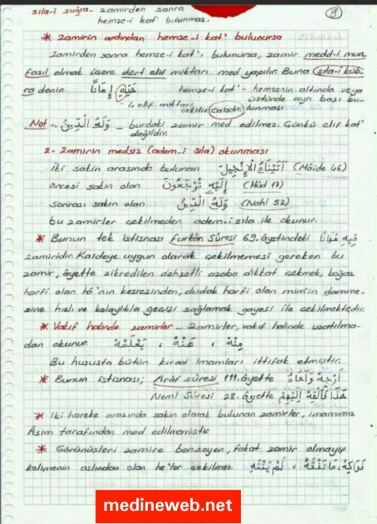 sıla-i suğra - zamirden sonra
hemze-i kat' bulunmaz.
9
* Zamirin ardından hemze-i kat' bulunursa
zamirden sonra hemze-i kat', bulunursa, zamir medd-i mun
fasıl olmak üzere dört elif miktarı med yapılır. Buna sıla-i küb
ra denir.
4 elif miktarı
hemze-i kat' - hemzenin altında veya
üstünde ayın başı bu-
lunması
Not - وَلَهُ الدِّينُ - burdaki zamir med edilmez. Çünkü elif kat'
değildir.
2- Zamirin medsiz (adem-i sıla) okunması
iki sakin arasında bulunan اٰتَيْنَاهُ الْاِنْجِيلَ (Mâide 46)
öncesi sakin olan اِلَيْهِ تُرْجَعُونَ
sonrası sakin olan وَلَهُ الدِّينُ (Nahl 52)
bu zamirler çekilmeden adem-i sıla ile okunur.
* Bunun tek istisnası Furkân Sûresi 69. âyetindeki فِيهِ مُهَانًا
zamiridir. Kaideye uygun olarak çekilmemesi gereken bu
zamir, âyette zikredilen dehşetli azaba dikkat çekmek, boğaz
harfi olan hâ'nın kesresinden, dudak harfi olan mim'in damme-
sine hızlı ve kolaylıkla geçişi sağlamak gayesi ile çekilmektedir.
* Vakıf halinde zamirler - Zamirler, vakıf halinde uzatılma-
dan okunur. مِنْهُ ، عَنْهُ ،
Bu hususta bütün kıraat imamları ittifak etmiştir.
* Bunun istisnası; Arâf sûresi 111. âyette اَرْجِهْ وَاَخَاهُ
Neml Sûresi 28. âyette هٰذَا فَاَلْقِهْ اِلَيْهِمْ
* İki hareke arasında sakin olarak bulunan zamirler, imamımız
Asım tarafından med edilmemiştir.
* Görünüşleri zamire benzeyen, fakat zamir olmayıp
kelimenin aslından olan he'ler çekilmez. فَوَاكِهُ، مَا نَفْقَهُ ، لَمْ يَنْتَهِ
medineweb.net